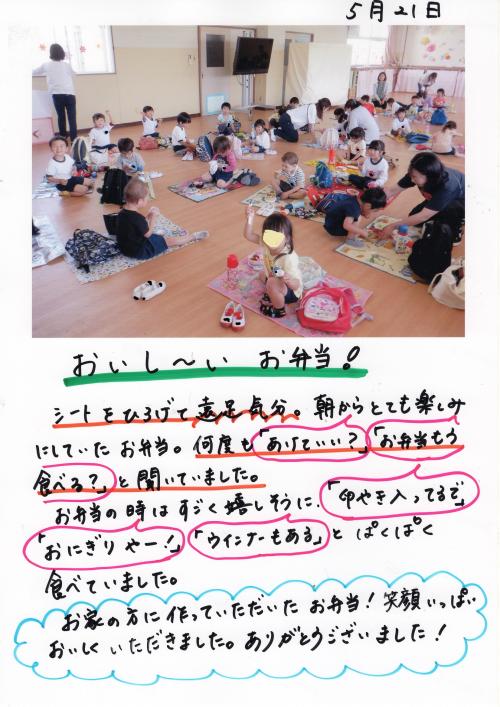 5月21日
おいし〜い お弁当!
シートをひろげて遠足気分。朝からとても楽しみ
にしていたお弁当。何度も「あけていい?」「お弁当もう
食べる?」と聞いていました。
お弁当の時はすごく嬉しそうに、「卵やき入ってるで」
「おにぎりやー!」「ウインナーもある」とぱくぱく
食べていました。
お家の方に作っていただいたお弁当!笑顔いっぱい
おいしくいただきました。ありがとうございました!